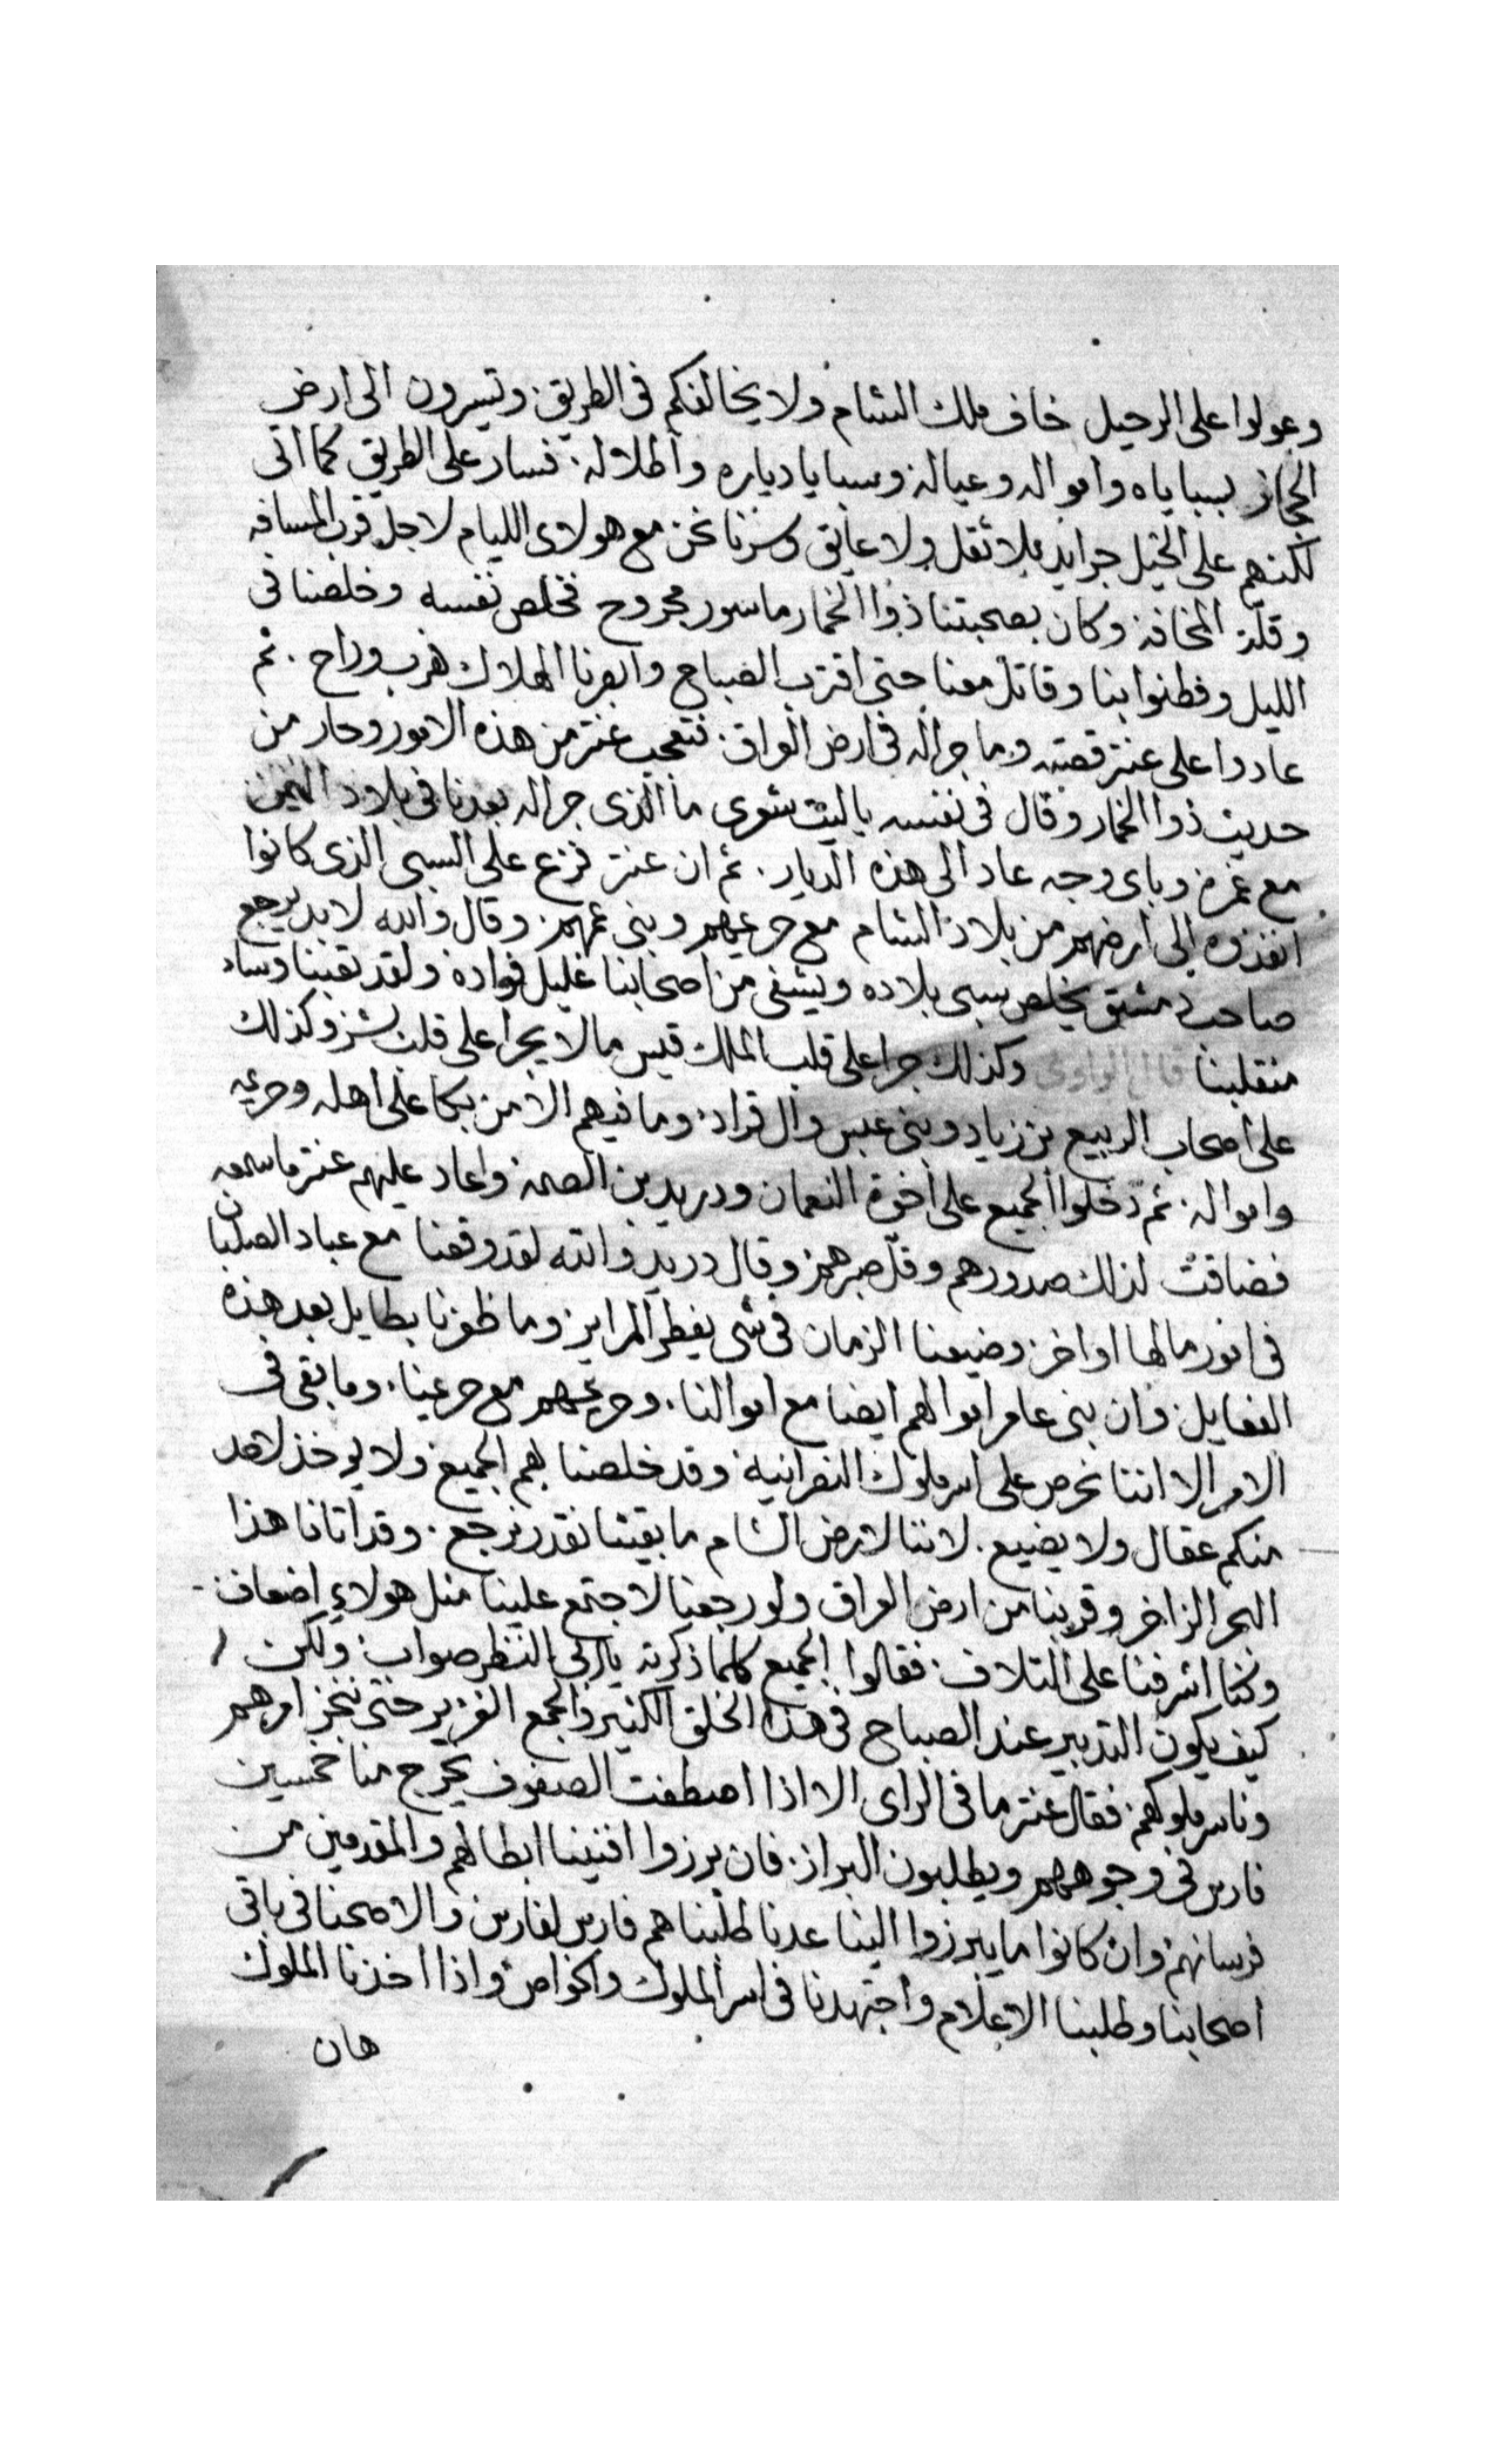 وعولوا على الرحيل خاف ملك الشام ولا يخالفكم فى الطريق وتسيرون الى ارض
الحجاز بسباياه وامواله وعياله وسبايا دياره واطلاله فسار على الطريق كما اتى
لكنهم على الخيل جرايد بلا ثقل ولا عايق وسرنا نحن مع هولاى الليام لاجل قرب المسافه
وقلة المخافه وكان بصحبتنا ذوا الخمار ماسور مجروح فخلص نفسه وخلصنا فى
الليل وفطنوا بنا وقاتل معنا حتى اقترب الصباح وابصرنا الهلاك هرب وراح . ثم
عادوا على عنتر قصته وما جراله فى ارض العراق فتعجب عنتر من هذه الامور وحار من
حديث ذوا الخمار وقال فى نفسه ياليت شعرى ما الذى جراله بعدنا فى بلاد اليمن
مع غمره وباى وجه عاد الى هذه الديار . ثم ان عنتر فزع على السبى الذى كانوا
انفذوه الى ارضهم من بلاد الشام مع حريمهم وبنى عمهم وقال والله لابد يرجع
صاحب دمشق يخلص سبى بلاده ويشفى من اصحابنا غليل فواده ولقد تعبنا وساء
منقلبنا قال الراوى وكذلك جرا على قلب الملك قيس مالا يجرا على قلب بشر وكذلك
على اصحاب الربيع بن زياد وبنى عبس وال قراد وما فيهم الا من بكا على اهله وحريمه
وامواله ثم دخلوا الجميع على اخوة النعمان ودريد بن الصمه واعاد عليهم عنتر ما سمعه
فضاقت لذلك صدورهم وقل صبرهم وقال دريد والله لقد وقعنا مع عباد الصلبان
فى امور مالها اواخر وضيعنا الزمان فى شى يفطر المراير وما ظفرنا بطايل بعد هذه
الفعايل وان بنى عامر اموالهم ايضا مع اموالنا . وحريمهم مع حريمنا . وما بقى فى
الامر الا اننا نحرص على اسر ملوك النصرانيه وقد خلصنا بهم الجميع ولا يوخذ لاحد
منكم عقال ولا يضيع . لاننا لارض الشام ما بقينا نقدر نرجع . وقد اتانا هذا
البحر الزاخر وقربنا من ارض العراق ولو رجعنا لاجتمع علينا مثل هولاء اضعاف
وكنا اشرفنا على التلاف فقالوا الجميع كلما ذكرته النظر صواب ولكن
كيف يكون التدبير عند الصباح فى هذا الخلق الكثير والجمع الغزير حتى ننجز امرهم
وناسر ملوكهم فقال عنتر ما فى الراى الا اذا اصطفت الصفوف يخرج منا خمسين
فارس فى وجوههم ويطلبون البراز . فان برزوا افنينا ابطالهم والمقدمين من
فرسانهم وان كانوا ما يبرزوا الينا عدنا طلبناهم فارس لفارس والا صحنا فى باقى
اصحابنا وطلبنا الاعلام واجتهدنا فى اسر الملوك والخواص واذا اخذنا الملوك
هان